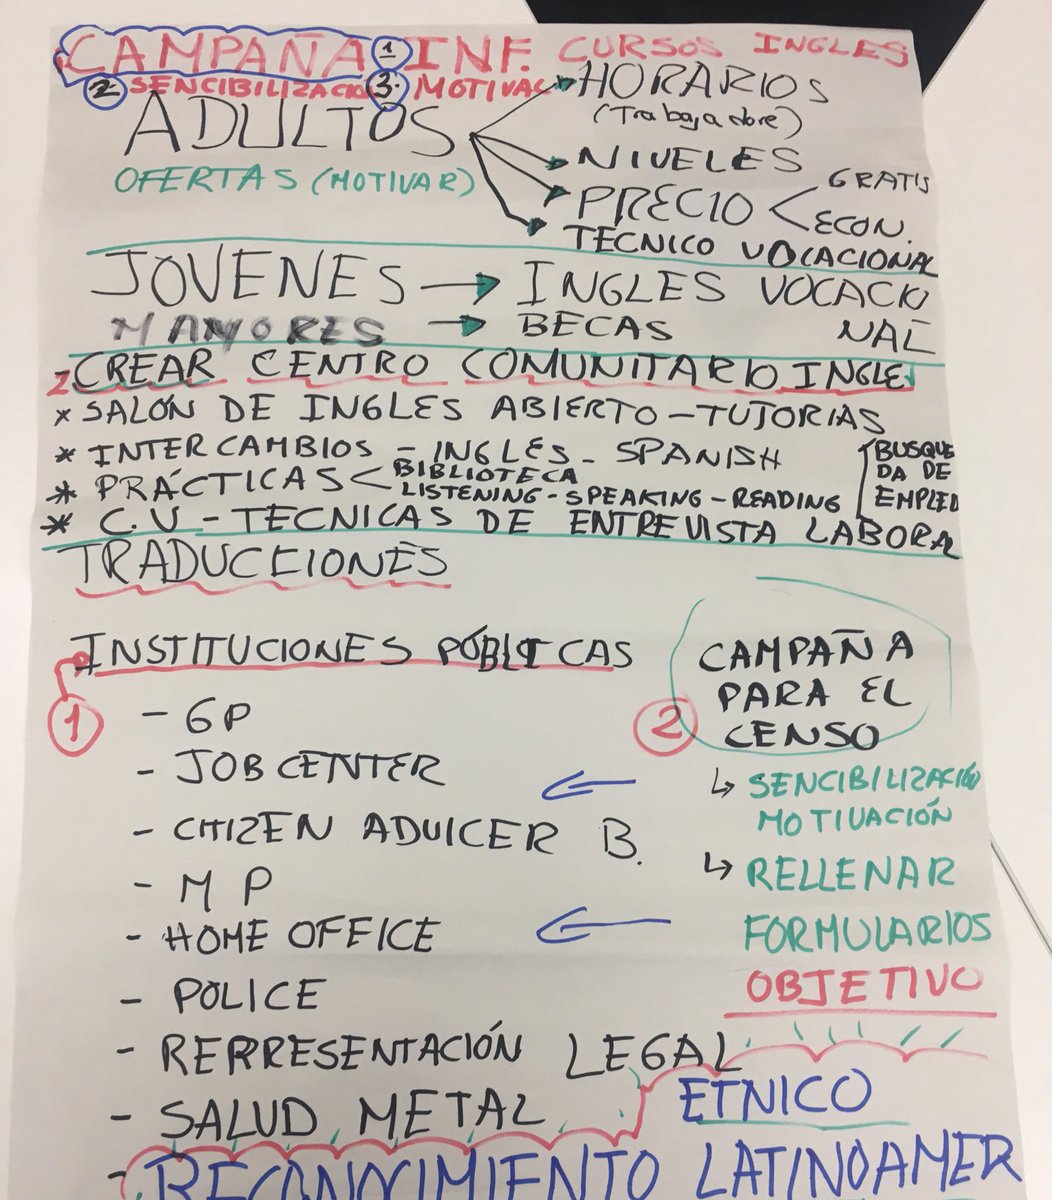 CAMPAÑA 1 INF. CURSOS INGLES
2 SENCIBILIZACIO 3. MOTIVAC
ADULTOS
OFERTAS (MOTIVAR)
HORARIOS
(Trabajadore)
NIVELES
PRECIO GRATIS
ECON.
TECNICO VOCACIONAL
JOVENES → INGLES VOCACIO
NAL
MAYORES → BECAS
2-CREAR CENTRO COMUNITARIO INGLES
* SALÓN DE INGLES ABIERTO - TUTORIAS
* INTERCAMBIOS - INGLES - SPANISH
* PRÁCTICAS < BIBLIOTECA
LISTENING - SPEAKING - READING
BUSQUE
DA DE
EMPLEO
* C.V - TECNICAS DE ENTREVISTA LABORAL
TRADUCCIONES
1 INSTITUCIONES PÚBLICAS
- GP
- JOB CENTER
- CITIZEN ADVICER B.
- MP
- HOME OFFICE
- POLICE
- REPRESENTACIÓN LEGAL
- SALUD METAL
2 CAMPAÑA
PARA EL
CENSO
↳ SENCIBILIZACIÓN
MOTIVACIÓN
↳ RELLENAR
FORMULARIOS
OBJETIVO
ETNICO
- RECONOCIMIENTO LATINOAMER